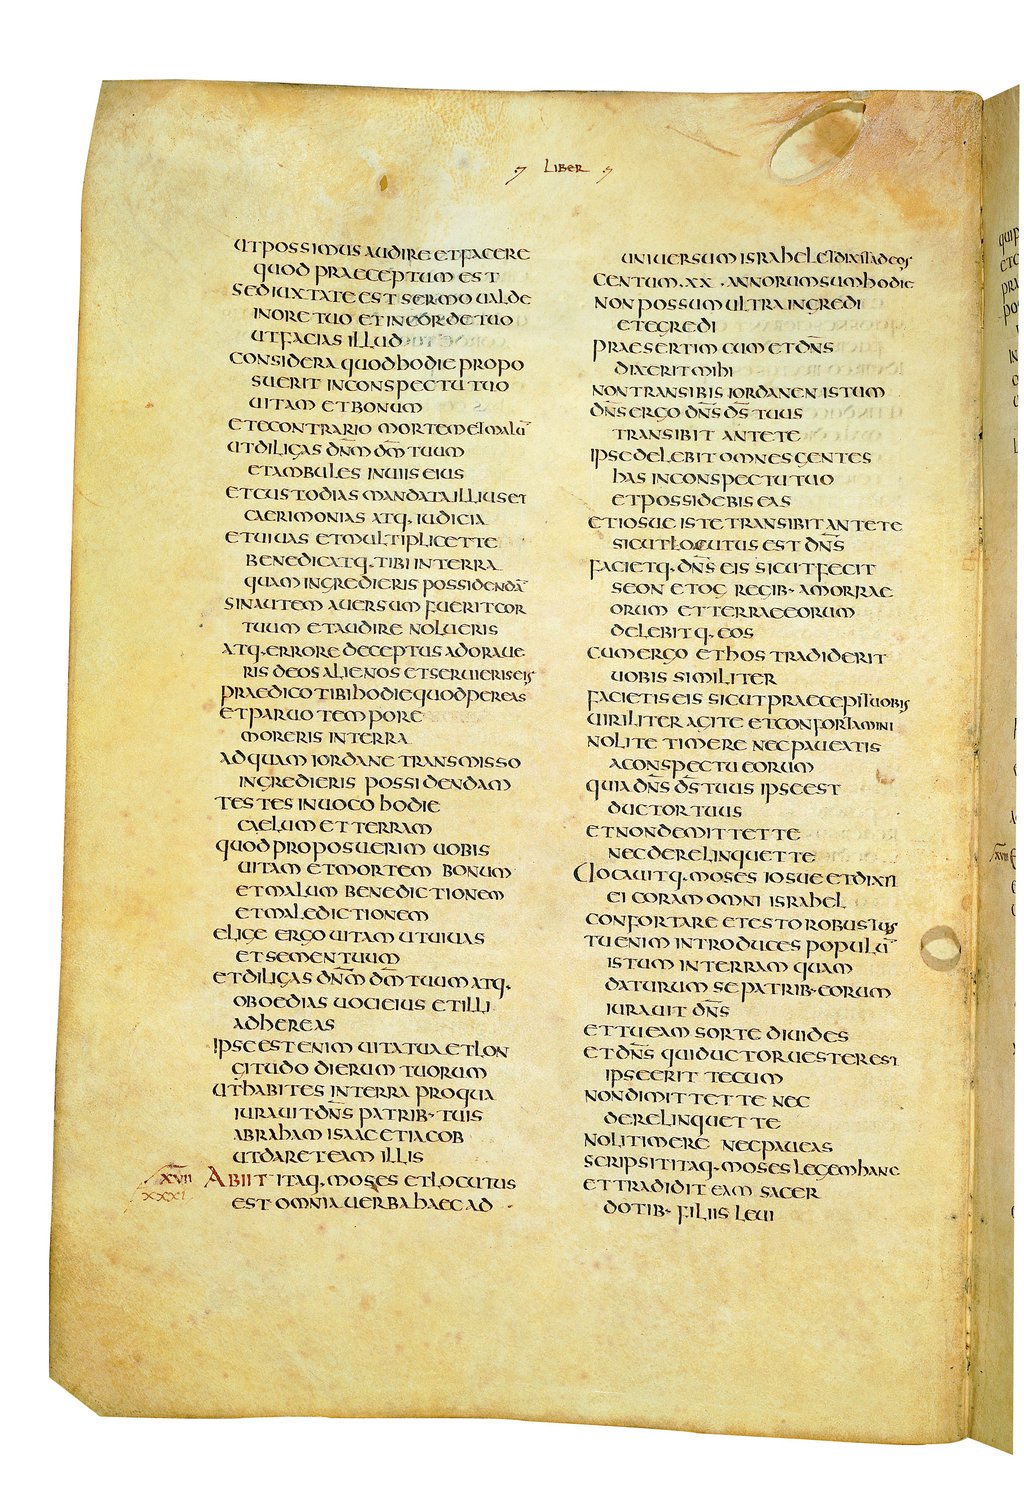 LIBER
UT POSSIMUS AUDIRE ET FACERE
QUOD PRAECEPTUM EST
SED IUXTA TE EST SERMO UALDE
IN ORE TUO ET IN CORDE TUO
UT FACIAS ILLUD
CONSIDERA QUOD HODIE PROPO
SUERIT IN CONSPECTU TUO
UITAM ET BONUM
ET E CONTRARIO MORTEM ET MALŪ
UT DILIGAS DN̄M DM̄ TUUM
ET AMBULES IN UIIS EIUS
ET CUSTODIAS MANDATA ILLIUS ET
CAERIMONIAS ATQ· IUDICIA
ET UIUAS ET MULTIPLICET TE
BENEDICATQ· TIBI IN TERRA
QUAM INGREDIERIS POSSIDENDĀ
SIN AUTEM AUERSUM FUERIT COR
TUUM ET AUDIRE NOLUERIS
ATQ· ERRORE DECEPTUS ADORAUE
RIS DEOS ALIENOS ET SERUIERIS EIS
PRAEDICO TIBI HODIE QUOD PEREAS
ET PARUO TEMPORE
MORERIS IN TERRA
AD QUAM IORDANE TRANSMISSO
INGREDIERIS POSSIDENDAM
TESTES INUOCO HODIE
CAELUM ET TERRAM
QUOD PROPOSUERIM UOBIS
UITAM ET MORTEM BONUM
ET MALUM BENEDICTIONEM
ET MALEDICTIONEM
ELIGE ERGO UITAM UT UIUAS
ET SEMEN TUUM
ET DILIGAS DN̄M DM̄ TUUM ATQ·
OBOEDIAS UOCI EIUS ET ILLI
ADHEREAS
IPSE EST ENIM UITA TUA ET LON
GITUDO DIERUM TUORUM
UT HABITES IN TERRA PRO QUA
IURAUIT DN̄S PATRIB· TUIS
ABRAHAM ISAAC ET IACOB
UT DARET EAM ILLIS
XVII ABIIT ITAQ· MOSES ET LOCUTUS
XXXI EST OMNIA UERBA HAEC AD
UNIUERSUM ISRAHEL ET DIXIT AD EOS
CENTUM · XX · ANNORUM SUM HODIE
NON POSSUM ULTRA INGREDI
ET EGREDI
PRAESERTIM CUM ET DN̄S
DIXERIT MIHI
NON TRANSIBIS IORDANEN ISTUM
DN̄S ERGO DN̄S DS̄ TUUS
TRANSIBIT ANTE TE
IPSE DELEBIT OMNES GENTES
HAS IN CONSPECTU TUO
ET POSSIDEBIS EAS
ET IOSUE ISTE TRANSIBIT ANTE TE
SICUT LOCUTUS EST DN̄S
FACIETQ· DN̄S EIS SICUT FECIT
SEON ET OG REGIB· AMORRAE
ORUM ET TERRAE EORUM
DELEBITQ· EOS
CUM ERGO ET HOS TRADIDERIT
UOBIS SIMILITER
FACIETIS EIS SICUT PRAECEPI UOBIS
UIRILITER AGITE ET CONFORTAMINI
NOLITE TIMERE NEC PAUEATIS
A CONSPECTU EORUM
QUIA DN̄S DS̄ TUUS IPSE EST
DUCTOR TUUS
ET NON DEMITTET TE
NEC DERELINQUET TE
UOCAUITQ· MOSES IOSUE ET DIXIT
EI CORAM OMNI ISRAHEL
CONFORTARE ET ESTO ROBUSTUS
TU ENIM INTRODUCES POPULŪ
ISTUM IN TERRAM QUAM
DATURUM SE PATRIB· EORUM
IURAUIT DN̄S
ET TU EAM SORTE DIUIDES
ET DN̄S QUI DUCTOR UESTER EST
IPSE ERIT TECUM
NON DIMITTET TE NEC
DERELINQUET TE
NOLI TIMERE NEC PAUEAS
SCRIPSIT ITAQ· MOSES LEGEM HANC
ET TRADIDIT EAM SACER
DOTIB· FILIIS LEUI